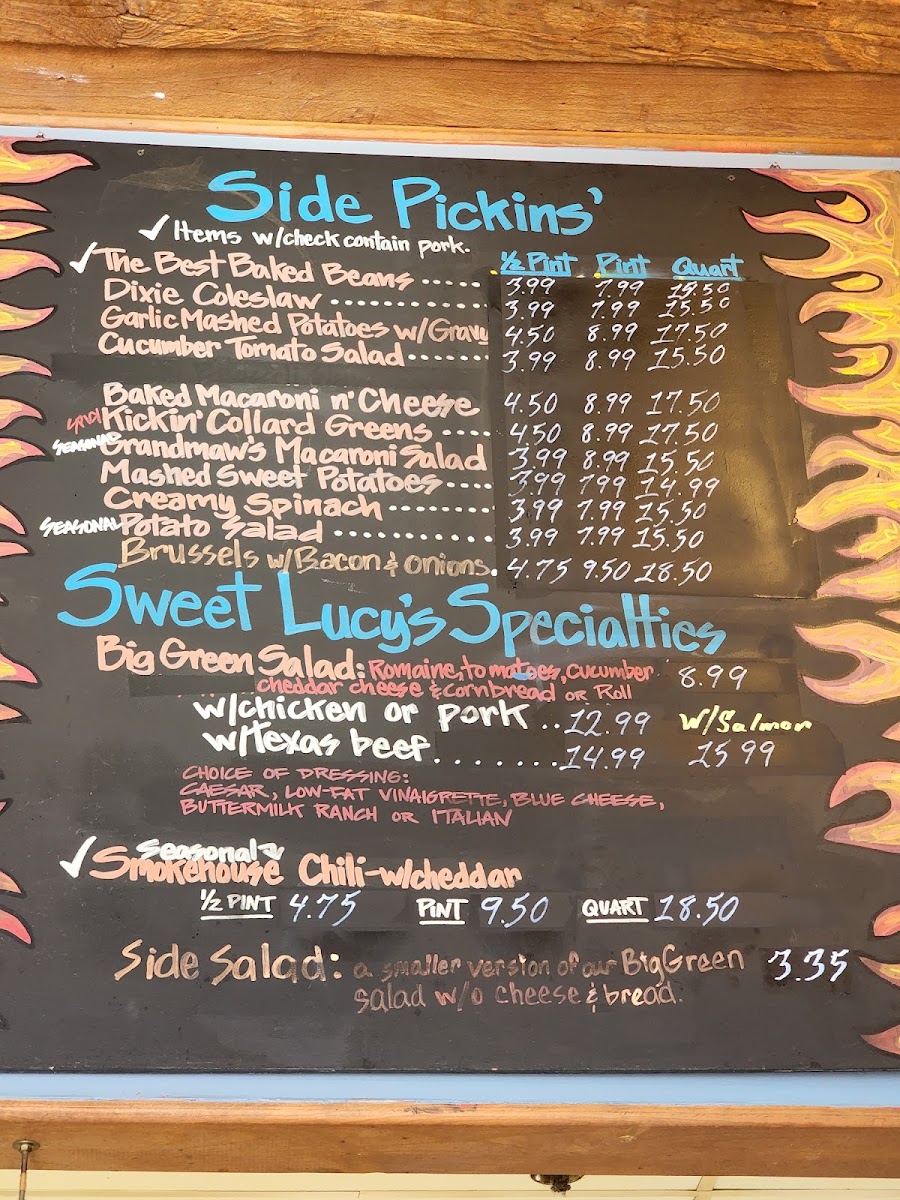 Side Pickins'
✓ Items w/check contain pork.
½ Pint Pint Quart
✓ The Best Baked Beans ..... 3.99 7.99 15.50
Dixie Coleslaw ............... 3.99 7.99 15.50
Garlic Mashed Potatoes w/Gravy 4.50 8.99 17.50
Cucumber Tomato Salad ....... 3.99 8.99 15.50
Baked Macaroni n' Cheese 4.50 8.99 17.50
Kickin' Collard Greens ..... 4.50 8.99 17.50
SEASONAL Grandmaw's Macaroni Salad 3.99 8.99 15.50
Mashed Sweet Potatoes .... 3.99 799 14.99
Creamy Spinach ......... 3.99 7.99 15.50
SEASONAL Potato Salad ............. 3.99 7.99 15.50
Brussels w/Bacon & onions. 4.75 9.50 18.50
Sweet Lucy's Specialties
Big Green Salad: Romaine, tomatoes, cucumber 8.99
cheddar cheese & cornbread or Roll
w/chicken or pork .. 12.99 w/Salmon
w/Texas beef ........ 14.99 15 99
CHOICE OF DRESSING:
CAESAR, LOW-FAT VINAIGRETTE, BLUE CHEESE,
BUTTERMILK RANCH OR ITALIAN
Seasonal
✓ Smokehouse Chili-w/cheddar
½ PINT 4.75 PINT 9.50 QUART 18.50
Side Salad: a smaller version of our Big Green 3.35
salad w/o cheese & bread.